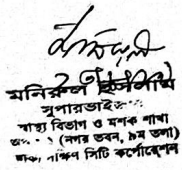 মনিরুল ইসলাম
সুপারভাইজার
স্বাস্থ্য বিভাগ ও মশক শাখা
(নগর ভবন, ৯ম তলা)
ঢাকা দক্ষিণ সিটি কর্পোরেশন